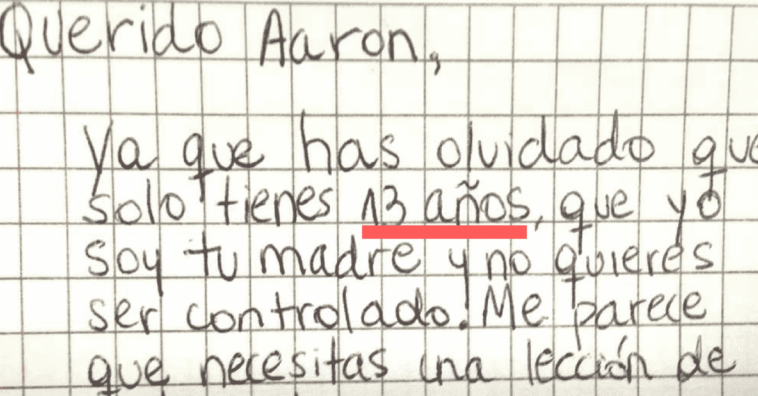 Querido Aaron,
Ya que has olvidado que
solo tienes 13 años, que yo
soy tu madre y no quieres
ser controlado. Me parece
que necesitas una lección de